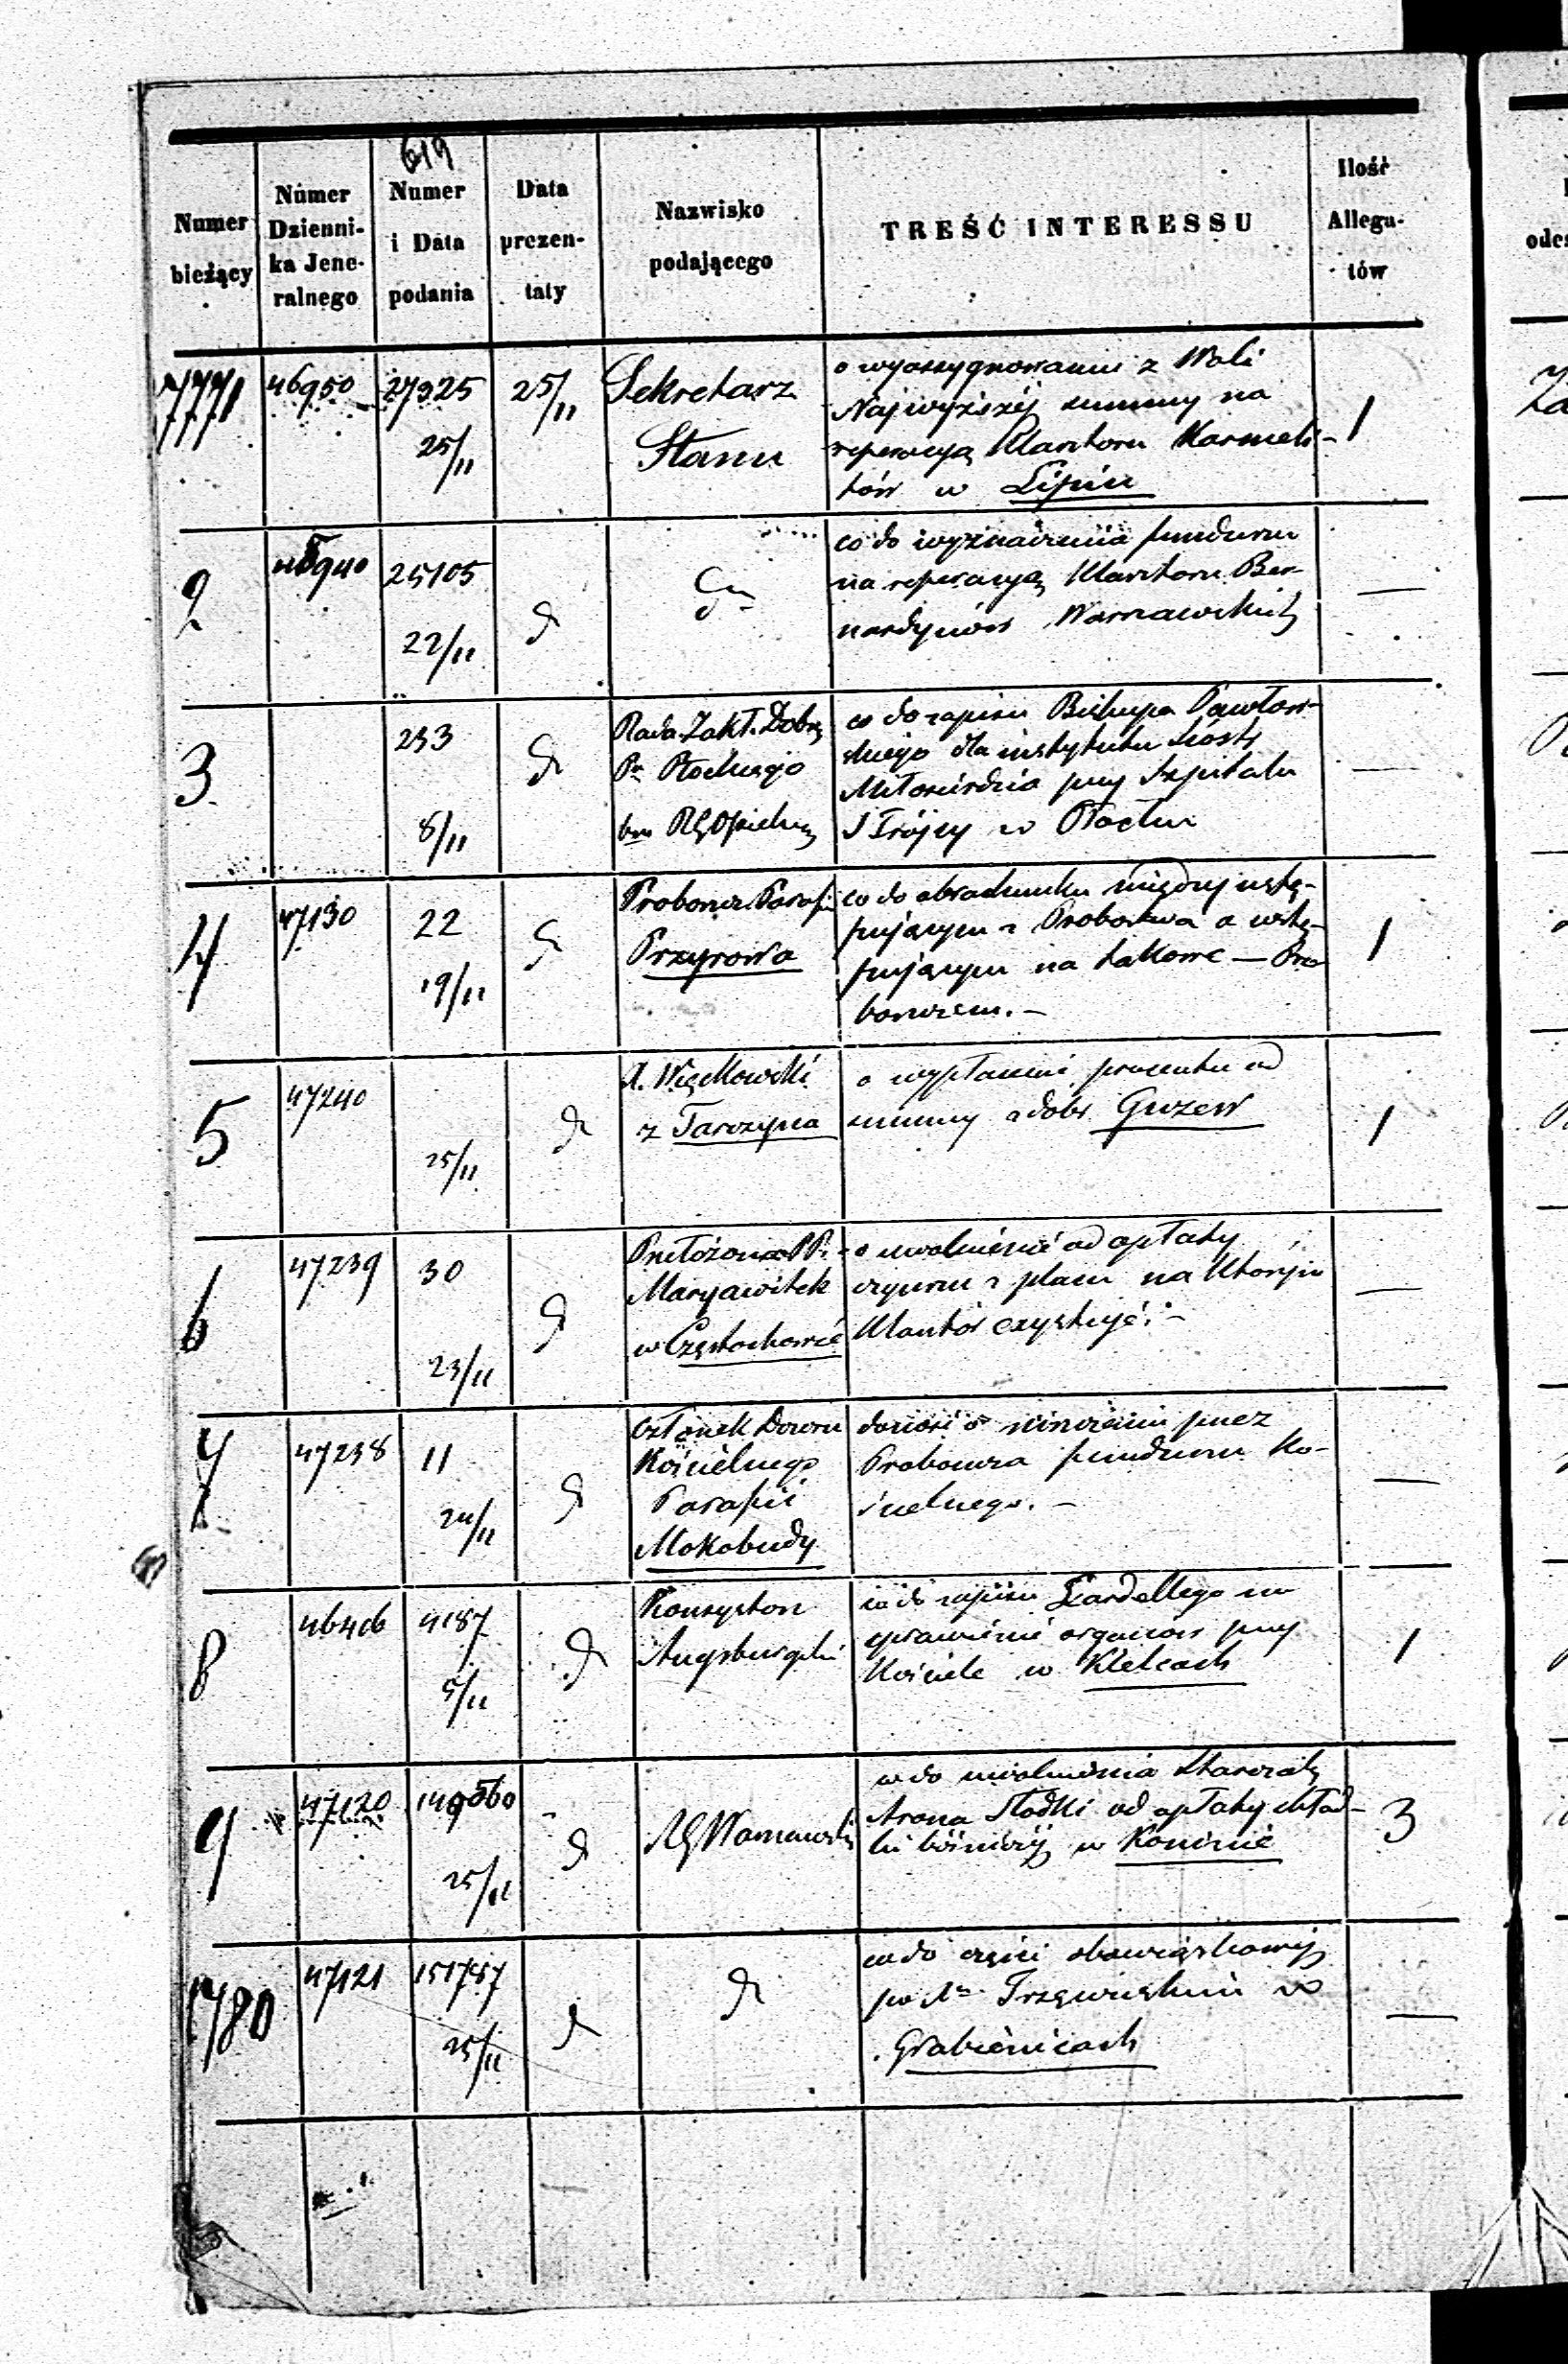 619
Numer
bieżący
Numer
Dzienni-
ka Jene-
ralnego
Numer
i Data
podania
Data
prezen-
taty
Nazwisko
podającego
TREŚĆ INTERESSU
Ilość
Allega-
tów
7771
46950
27925
25/11
25/11
Sekretarz
Stanu
o wyassygnowaniu z Woli
Najwyższéj summy na
reperacyą Klasztoru Karmeli-
tów w Lipiu
1
2
46940
25105
22/11
do
do
co do wyznaczenia funduszu
na reperacyą Klasztoru Ber-
nardynów Warszawskich
—
3
233
8/11
do
Rada Zakł. Dobr
Pu Płockiego
co do zapisu Biskupa Pawłow-
skiego dla instytutu Sióstr
Miłosierdzia przy Szpitalu
S Trójcy w Płocku
—
4
47130
22
19/11
do
Proboszcz Parafii
Przyrowa
co do obrachunku między ustę-
pującym z Probostwa a wstę-
pującym na takowe — Pro
boszczem. —
1
5
47240
25/11
do
X. Więckowski
z Tarczyna
o wypłacenie procentu od
summy z dóbr Guzew
1
6
47239
30
23/11
do
Przełożona PP.
Maryawitek
w Częstochowie
o uwolnienie od opłaty
czynszu z placu na którym
Klasztór exystuje. —
—
7
47238
11
24/11
do
Członek Dozoru
Kościelnego
Parafii
Mokobudy
donosi o zniszczeniu przez
Proboszcza funduszu Ko-
ścielnego. —
—
8
46406
4187
5/11
do
Konsystorz
Augsburgski
co do zapisu na
sprawienie organów przy
Kościele w Kielcach
1
9
47120
149560
25/11
do
RG Warszawski
co do uwolnienia Starozak
Arona Słodki od opłaty skład-
ki bóżniczéj w Koninie
3
7780
47121
151787
25/11
do
do
co do części obowiązkowéj
po Xu Trzewińskim w
Grabienicach
—